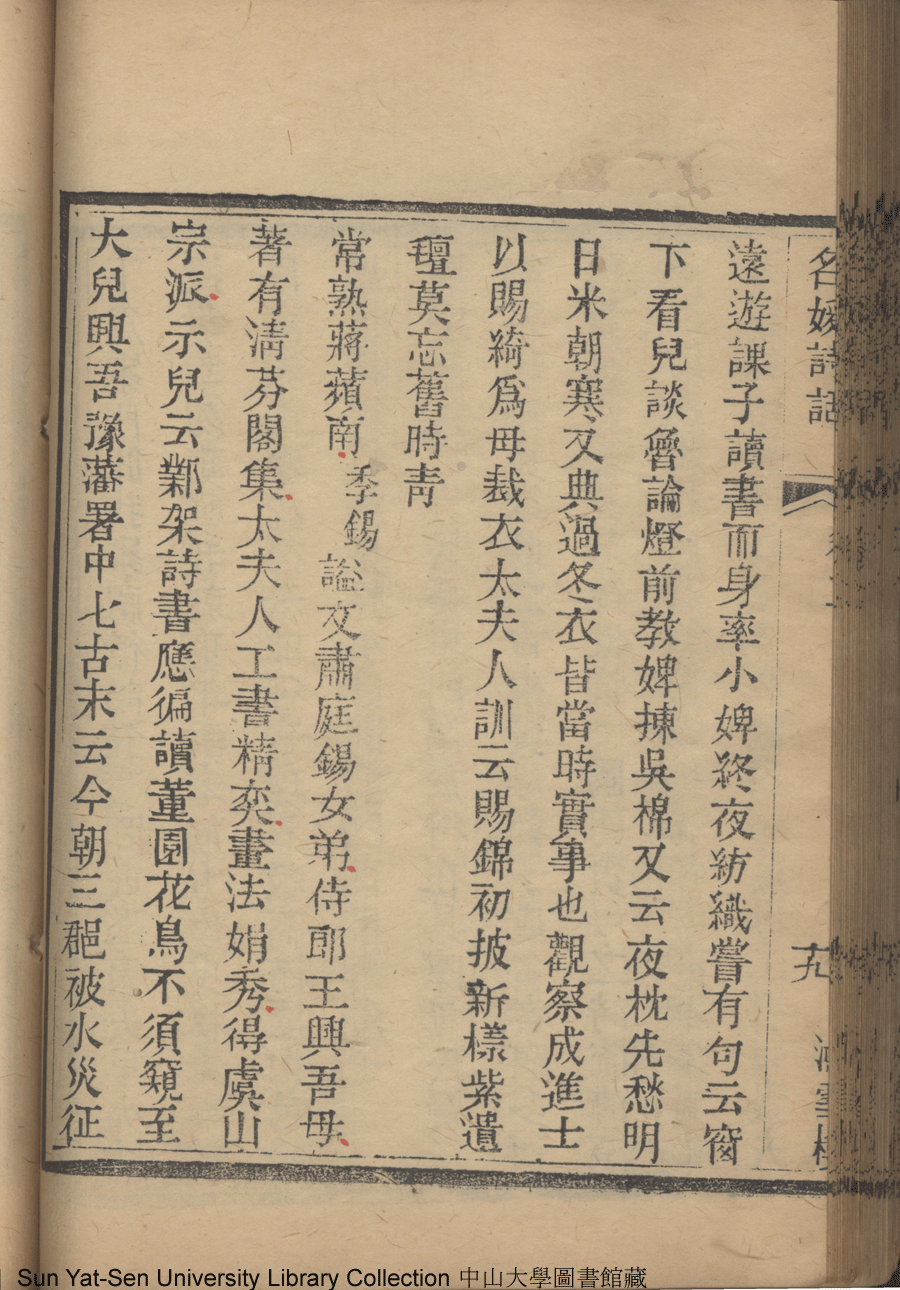 名媛詩話
十九
遠遊課子讀書而身率小婢終夜紡織嘗有句云窗
下看兒談魯論燈前教婢揀吳棉又云夜枕先愁明
日米朝寒又典過冬衣皆當時實事也觀察成進士
以賜綺爲母裁衣太夫人訓云賜錦初披新樣紫遺
氊莫忘舊時青
常熟蔣蘋南季錫謚文肅庭錫女弟侍郎王興吾母
著有淸芬閣集太夫人工書精奕畫法娟秀得虞山
宗派示兒云鄴架詩書應徧讀董園花鳥不須窺至
大兒興吾豫藩署中七古末云今朝三郡被水災征
Sun Yat-Sen University Library Collection 中山大學圖書館藏